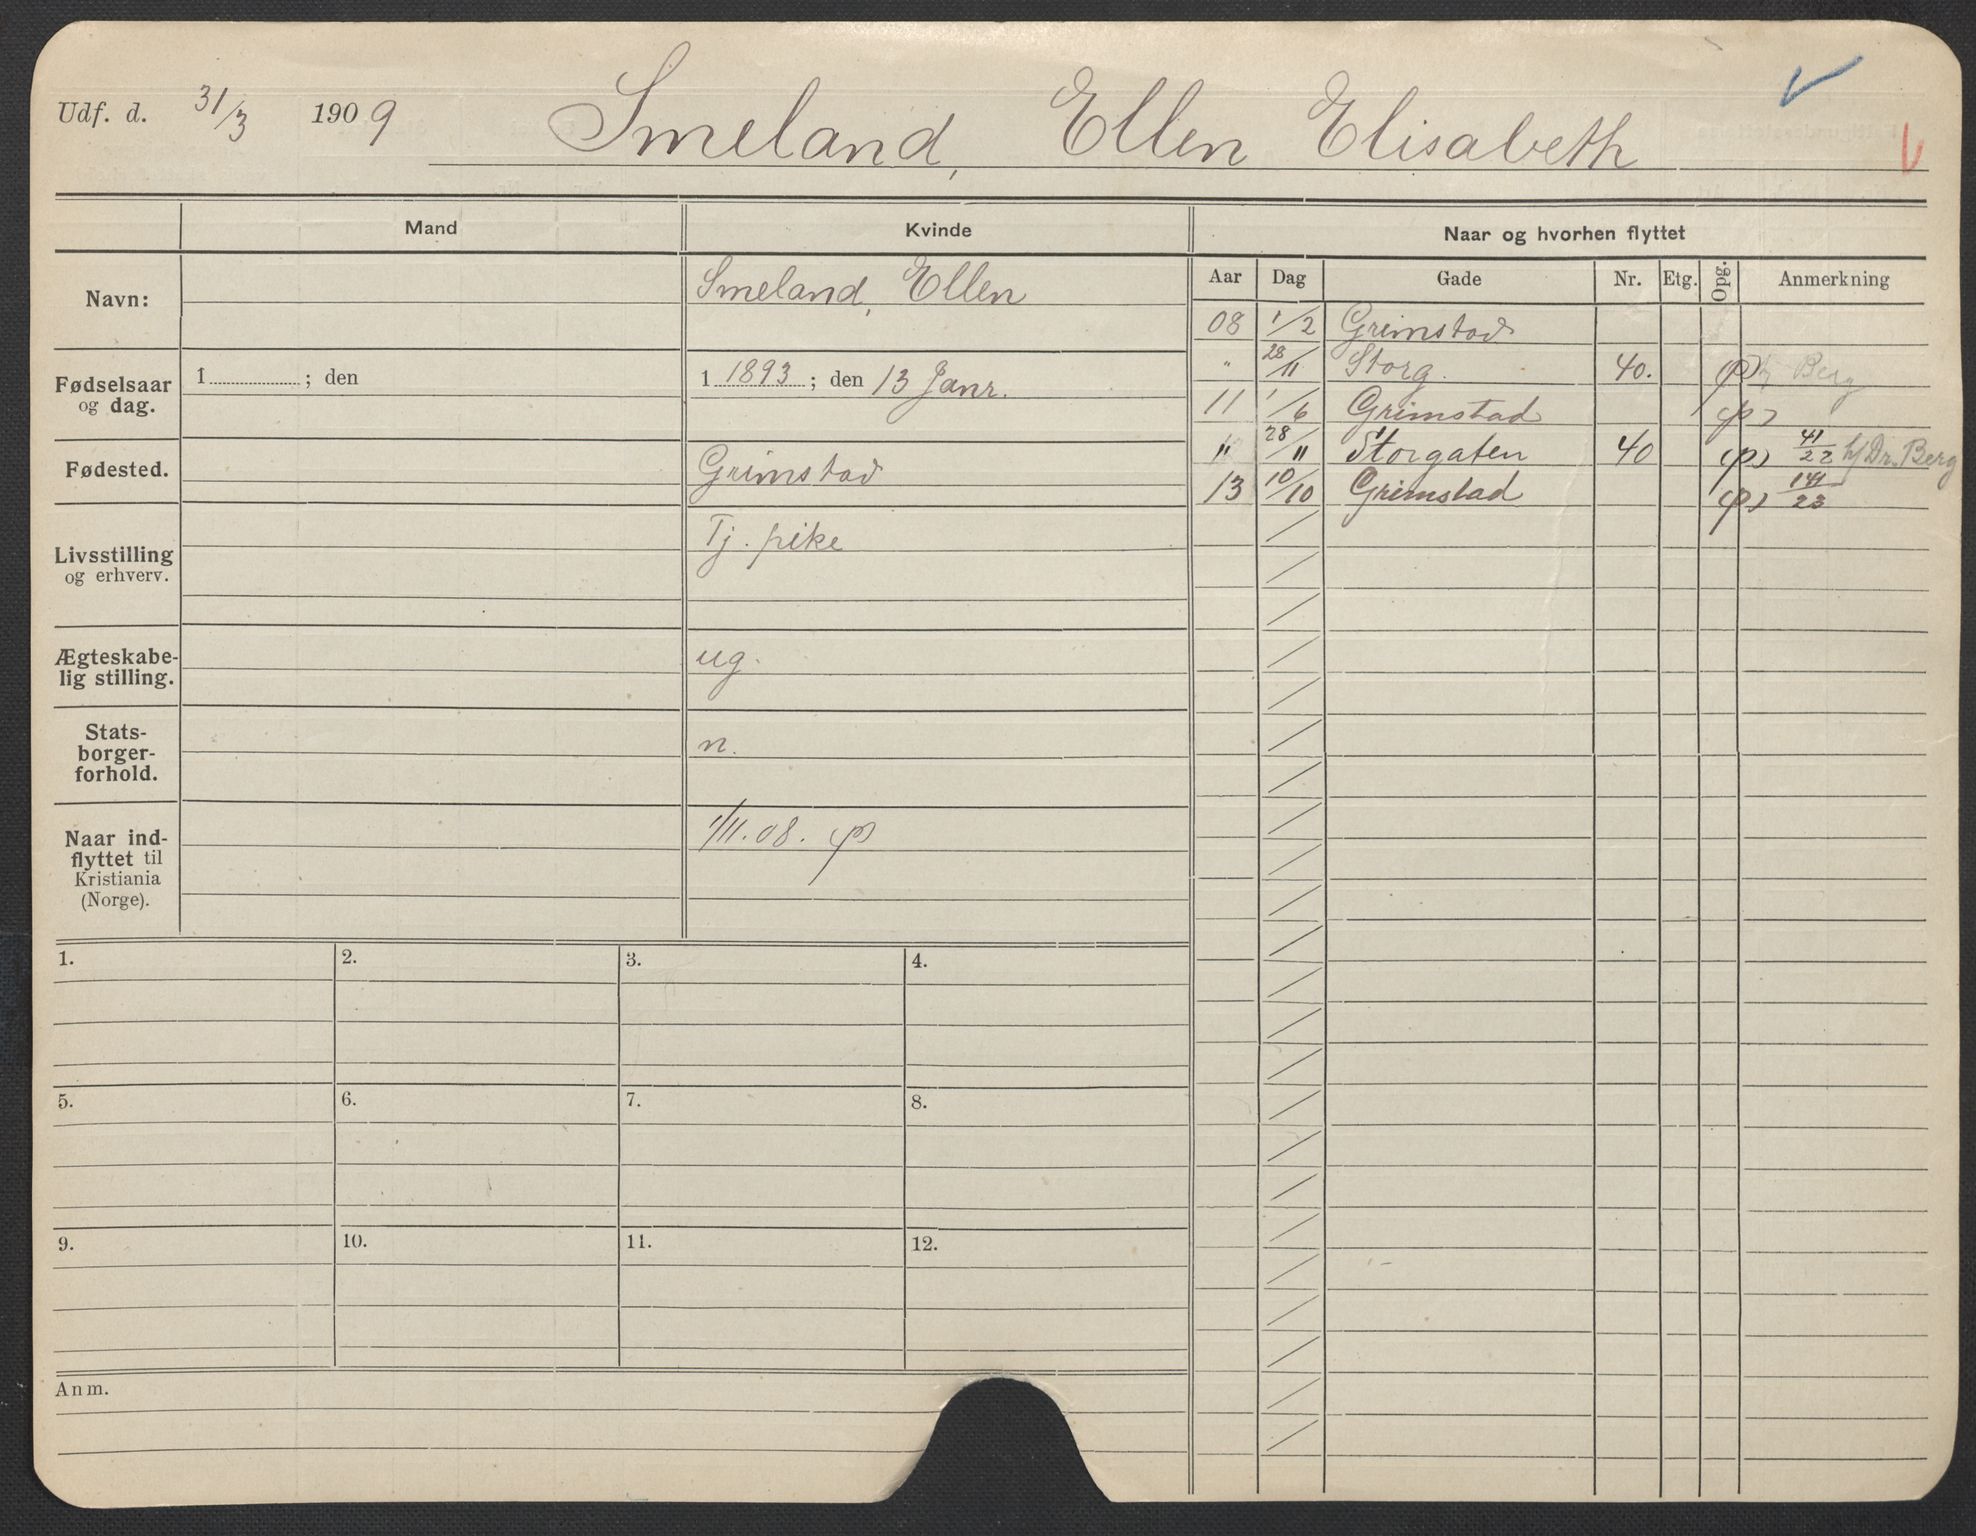 Udf. d. 31/3 1909 Smeland, Ellen Elisabeth
Mand Kvinde Naar og hvorhen flyttet
Aar Dag Gade Nr. Etg. Opg. Anmerkning
Navn: Smeland, Ellen
Fødselsaar og dag. 1 ; den 1 1893 ; den 13 Janr.
Fødested. Grimstad
Livsstilling og erhverv. Tj. pike
Ægteskabe-
lig stilling. ug.
Stats-
borger-
forhold. n.
Naar ind-
flyttet til
Kristiania
(Norge). 1/11.08. (p)
08 1/2 Grimstad
" 28/11 Storg. 40. (p) Berg
11 1/6 Grimstad (p)
" 28/11 Storgaten 40 (p) 41/22 h/Dr. Berg
13 10/10 Grimstad (p) 23
1. 2. 3. 4.
5. 6. 7. 8.
9. 10. 11. 12.
Anm.